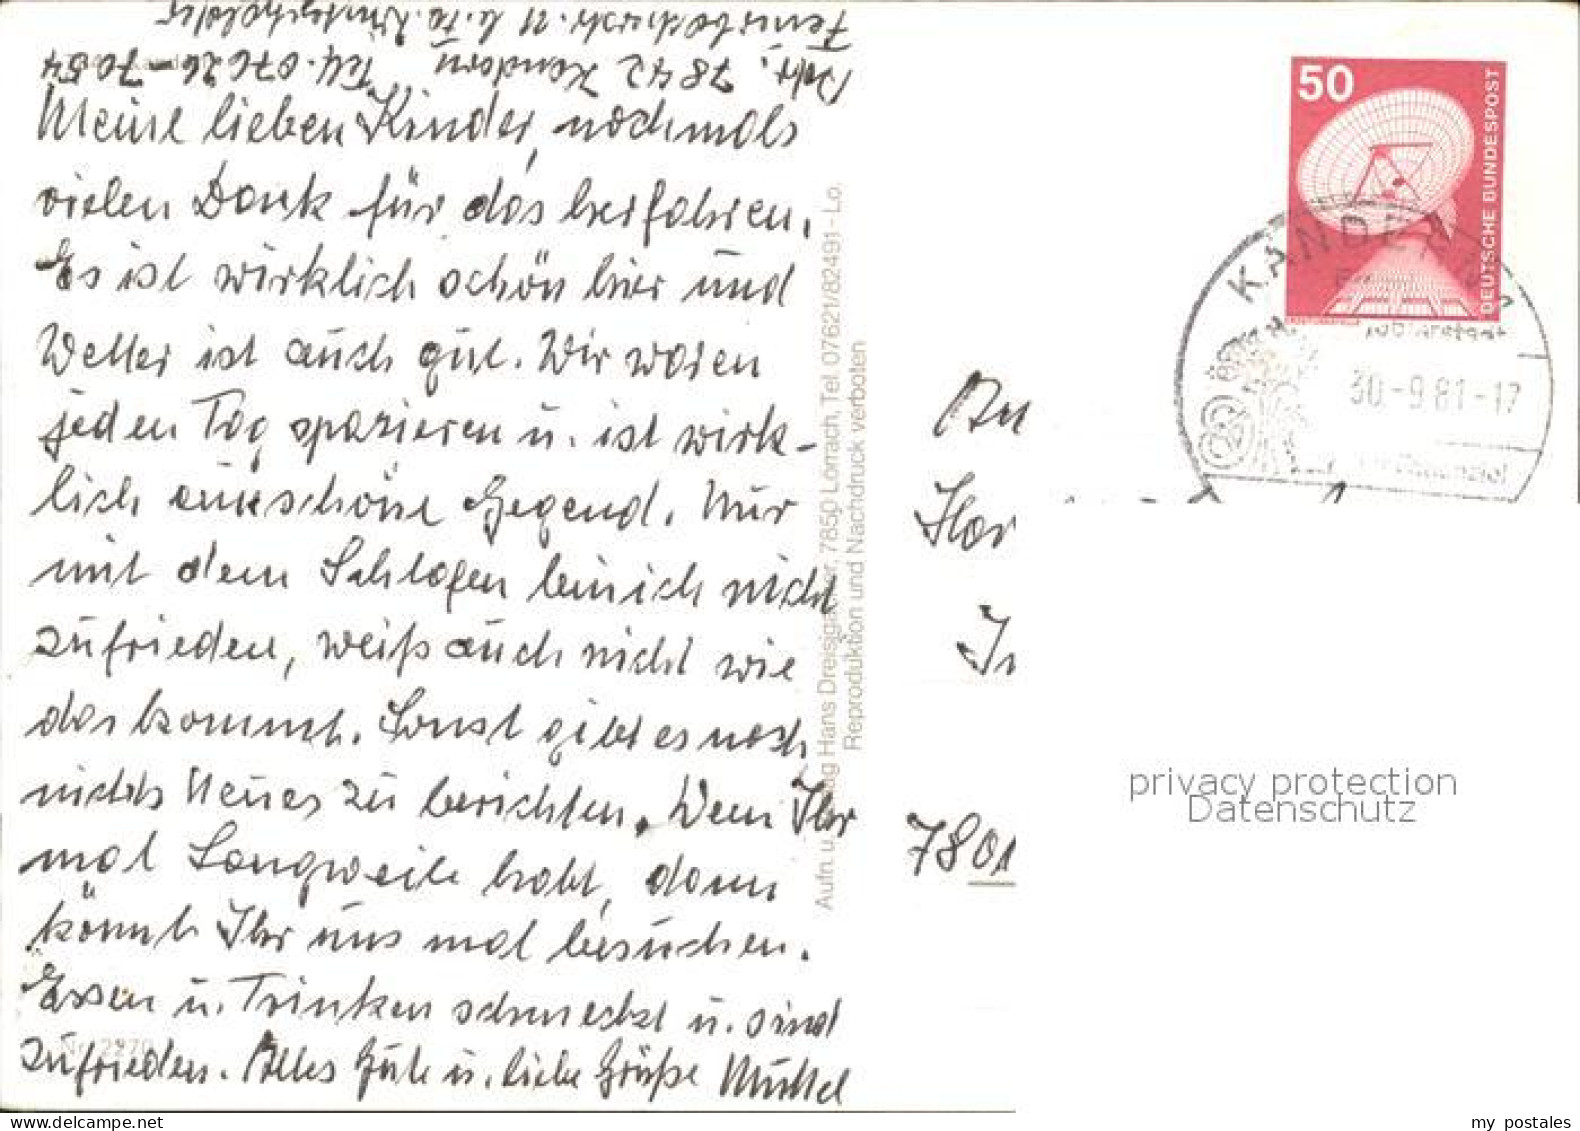 7842 Kandern Tel. 07626-7054
Meine lieben Kinder, nochmals
vielen Dank für das herfahren.
Es ist wirklich schön hier und
Wetter ist auch gut. Wir waren
jeden Tag spazieren u. ist wirk-
lich schöne Gegend. Nur
mit dem Schlafen bin ich nicht
zufrieden, weiß auch nicht wie
das kommt. Sonst gibt es noch
nichts Neues zu berichten. Wenn Ihr
mal Langweile habt, dann
könnt Ihr uns mal besuchen.
Essen u. Trinken schmeckt u. sind
zufrieden. Alles Gute u. liebe Grüße Muttel
Nr. 2270
Aufn. u. Hans Dreisigacker, 7850 Lörrach, Tel. 07621/82491 - Lö.
Reproduktion und Nachdruck verboten
50
DEUTSCHE BUNDESPOST
KANDERN 1
30.-9.81-17
An
7801
privacy protection
Datenschutz
my postales